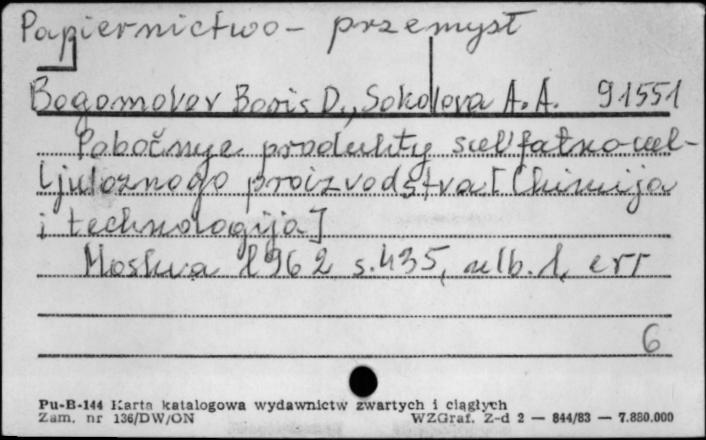 Papiernictwo - przemysł
Bogomolov Boris D., Sokolova A. A. 91551
Pobočnye produkty sul'fatno-cel-
ljuloznogo proizvodstva [Chimija
i technologija]
Moskva 1962 s. 435, nlb. 1, err
6
Pu-B-144 Karta katalogowa wydawnictw zwartych i ciągłych
Zam. nr 136/DW/ON WZGraf. Z-d 2 — 844/83 — 7.880.000